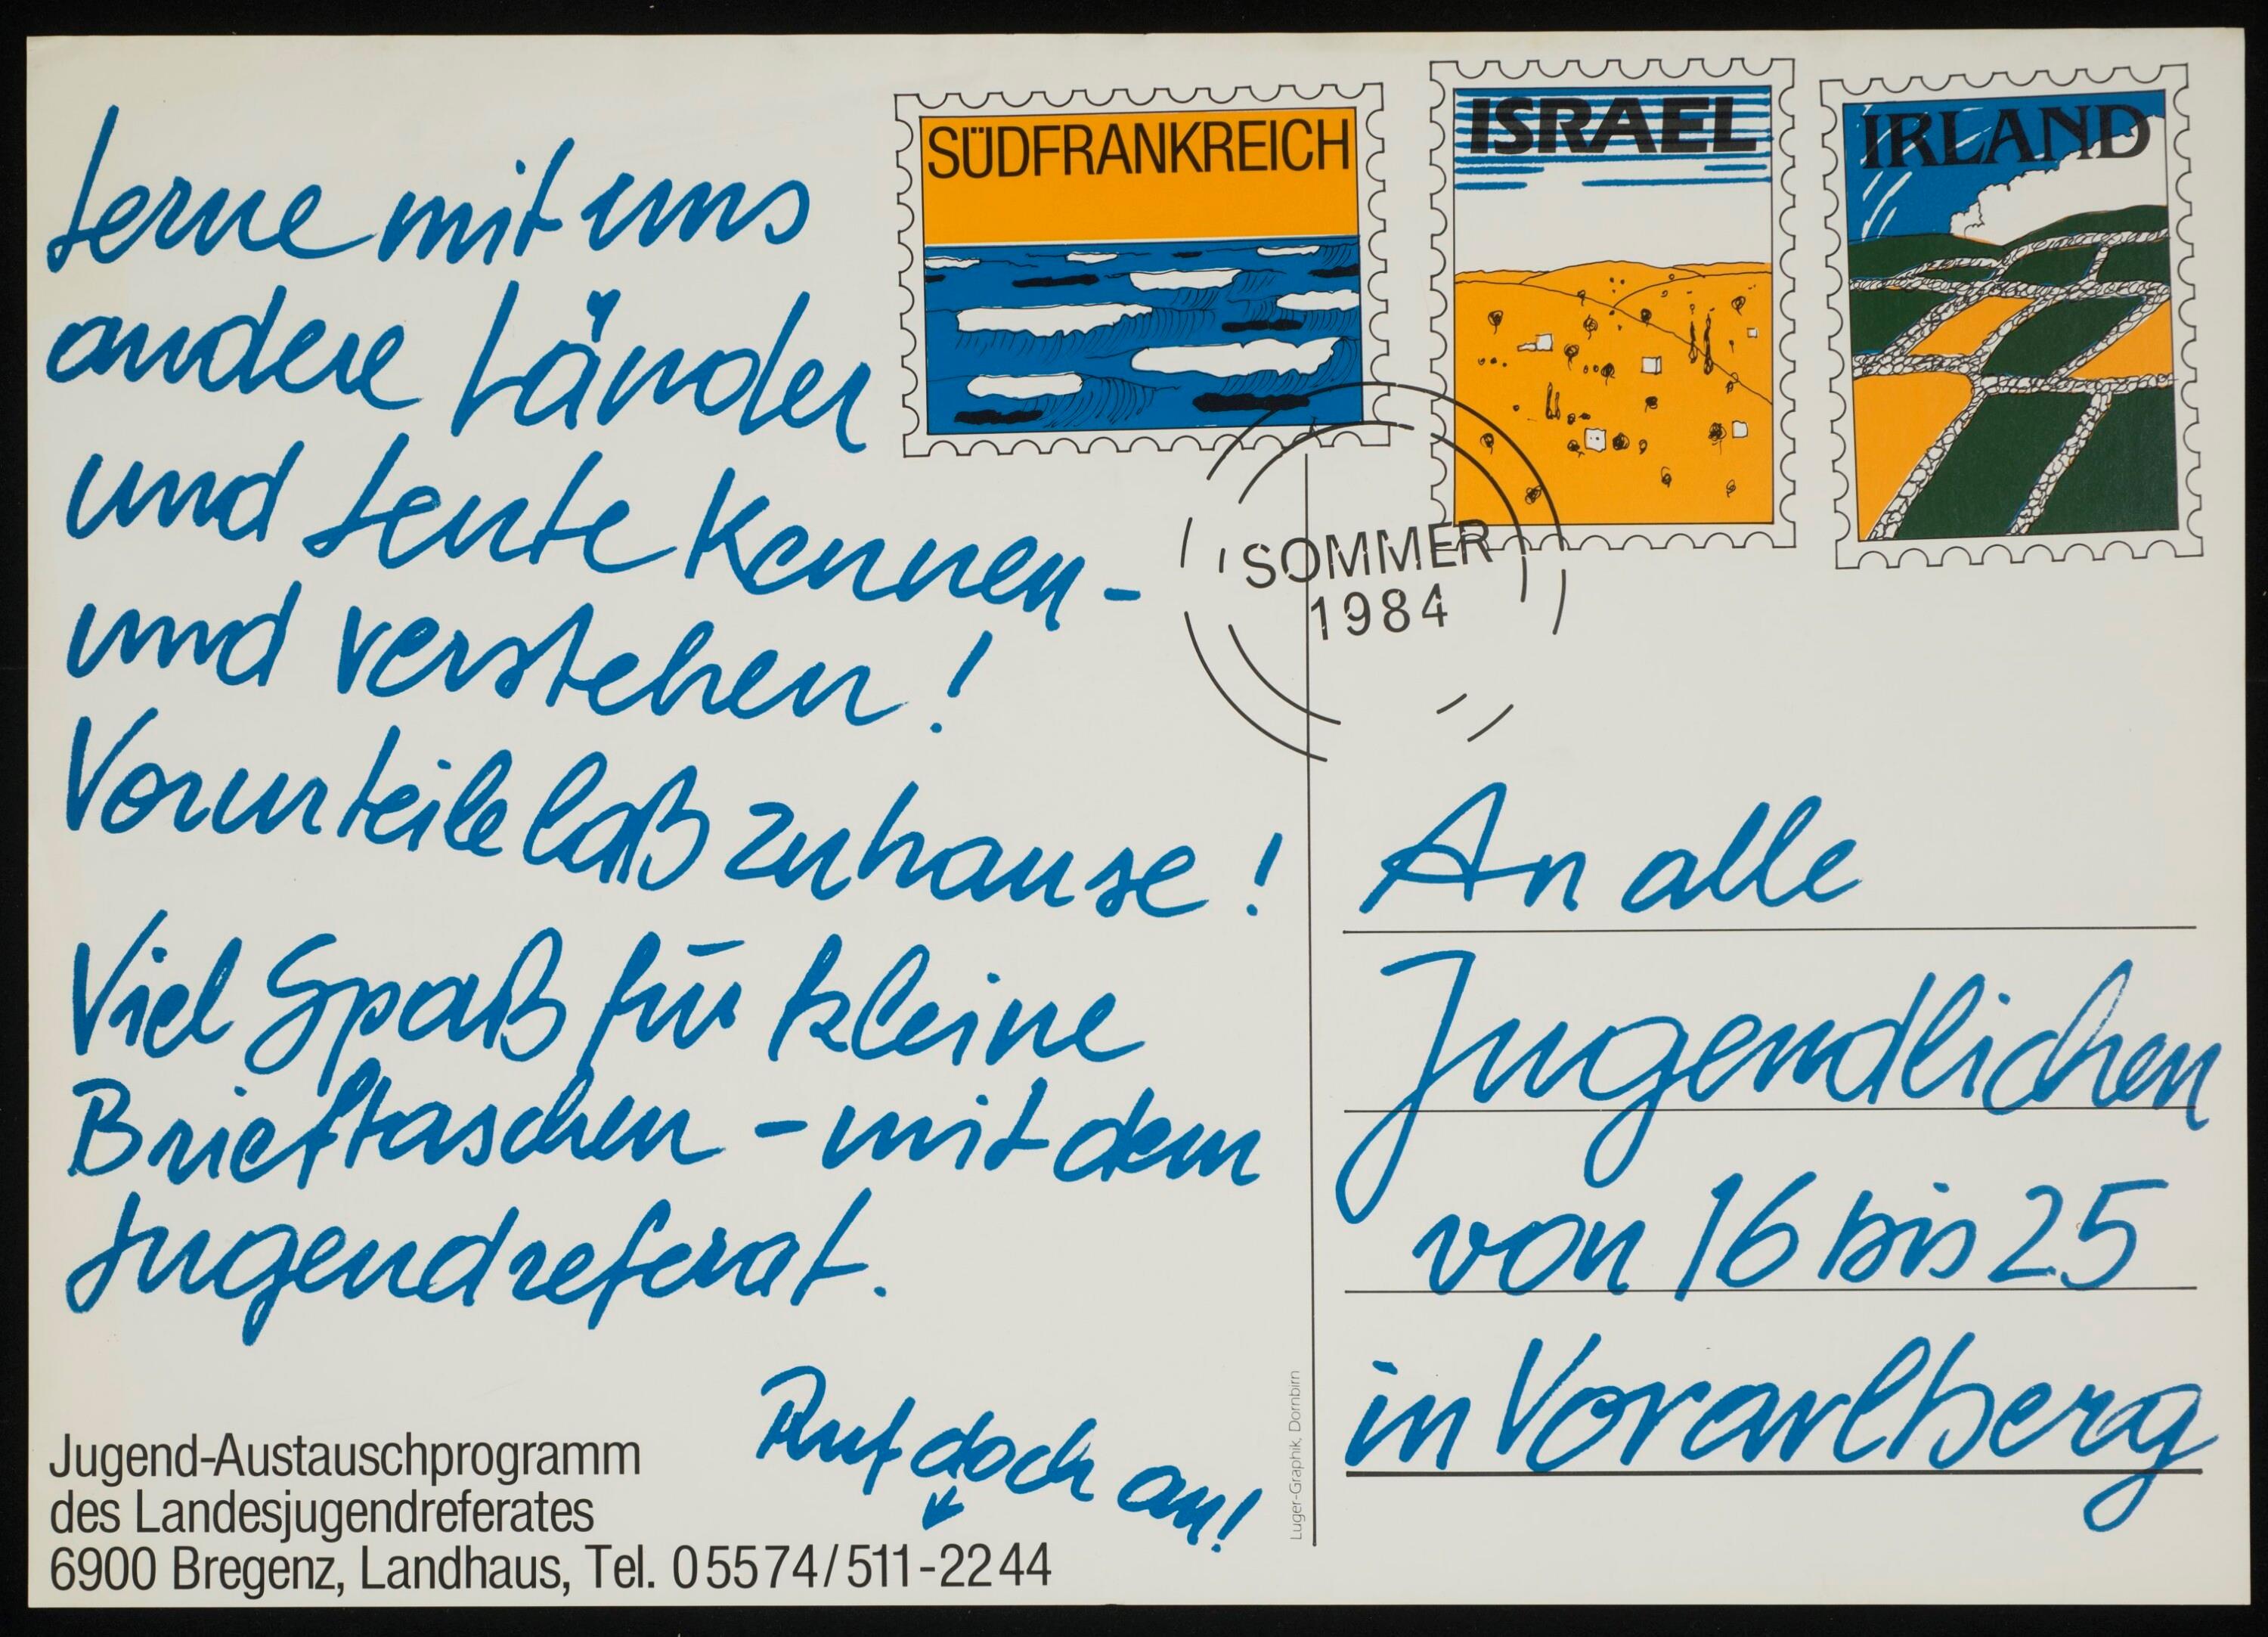 Lerne mit uns
andere Länder
und Leute kennen-
und verstehen!
Vorurteile laß zuhause!
Viel Spaß für kleine
Brieftaschen - mit dem
Jugendreferat.
Ruf doch an!
Jugend-Austauschprogramm
des Landesjugendreferates
6900 Bregenz, Landhaus, Tel. 05574/511-2244
SÜDFRANKREICH
ISRAEL
IRLAND
SOMMER
1984
An alle
Jugendlichen
von 16 bis 25
in Vorarlberg
Luger-Graphik, Dornbirn